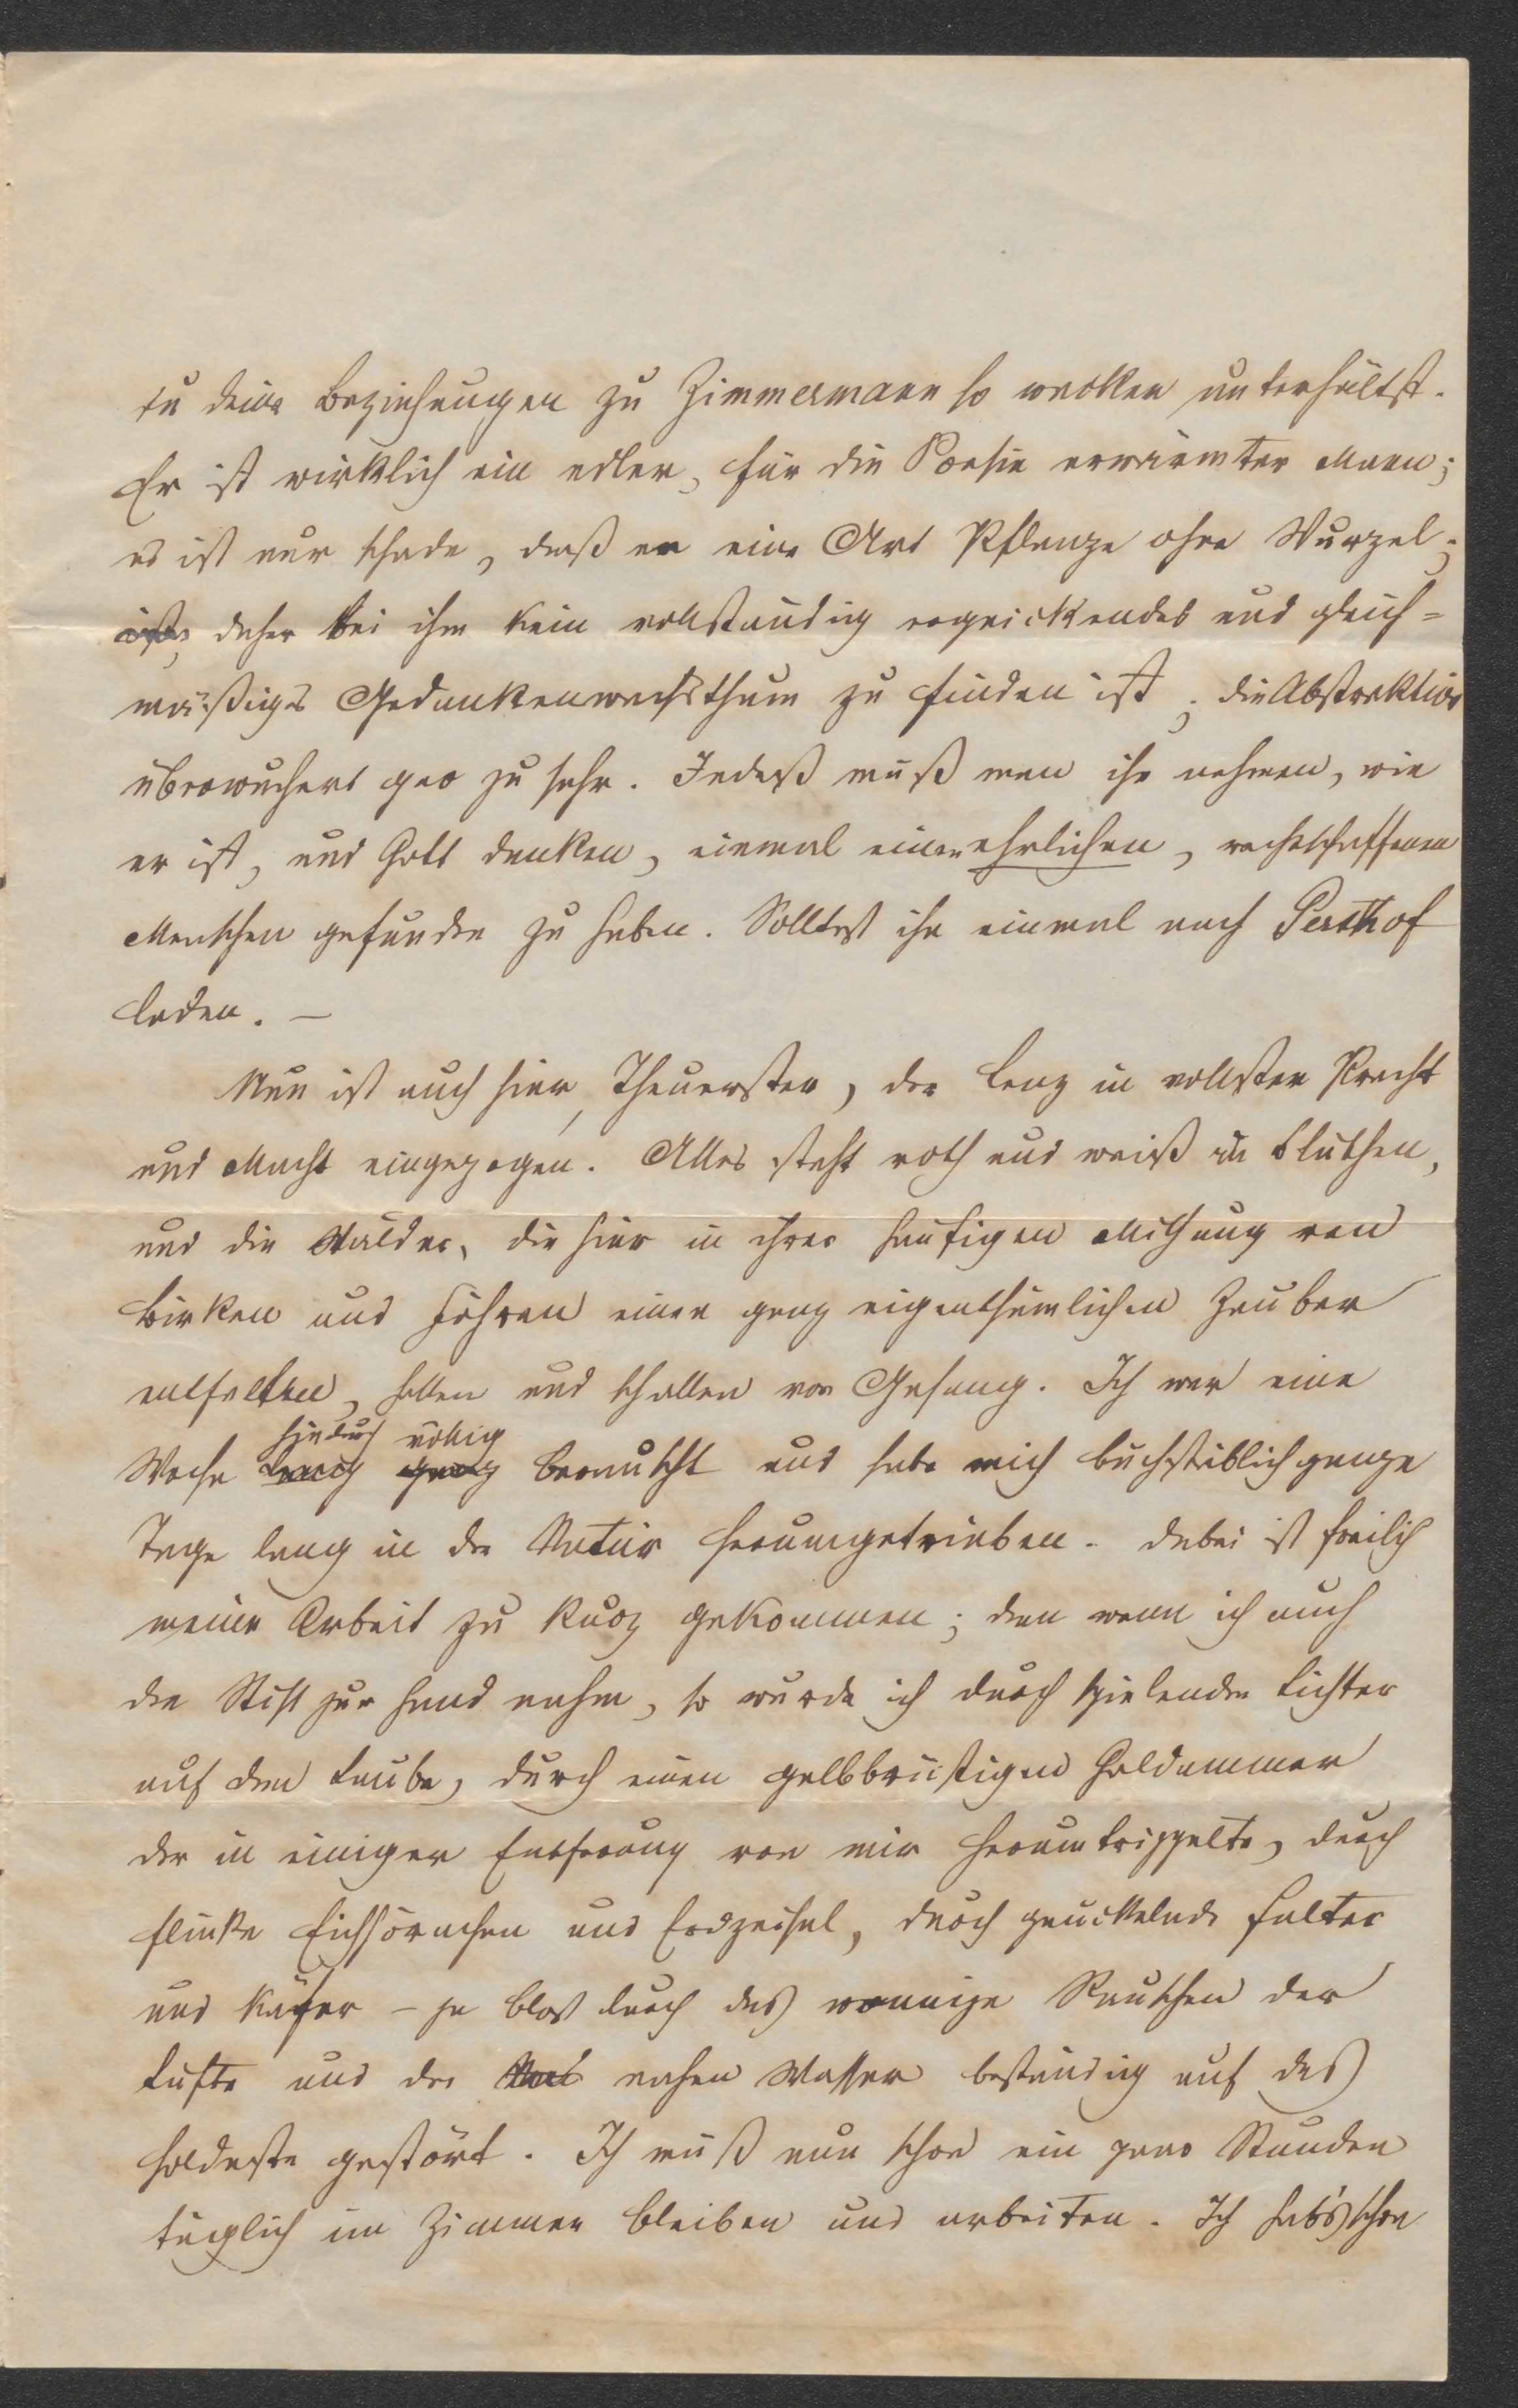 du deine Beziehungen zu Zimmermann so wacker unterhältst.
Er ist wirklich ein edler, für die Poesie erwärmter Mann;
es ist nur schade, daß er eine Art Pflanze ohne Wurzel
ist, daher bei ihm kein vollständig erquickendes und gleich=
mäßiges Gedankenwachsthum zu finden ist; die Abstraktion
überwuchert gar zu sehr. Indeß muß man ihn nehmen, wie
er ist, und Gott danken, einmal einen ehrlichen, rechtschaffenen
Menschen gefunden zu haben. Solltest ihn einmal nach Persthof
laden. —
Nun ist auch hier, Theuerster, der Lenz in vollster Pracht
und Macht eingezogen. Alles steht roth und weiß in Blüthen,
und die Wälder, die hier in ihrer häufigen Mischung von
Birken und Föhren einen ganz eigenthümlichen Zauber
entfalten, hallen und schallen von Gesang. Ich war eine
hindurch völlig
Woche lang ganz berauscht und habe mich buchstäblich ganze
Tage lang in der Natur herumgetrieben. Dabei ist freilich
meine Arbeit zu kurz gekommen; denn wenn ich auch
den Stift zur Hand nahm, so wurde ich durch spielende Lichter
auf dem Laube, durch einen gelbbrüstigen Goldammer
der in einiger Entfernung von mir herumtrippelte, durch
flinke Eichhörnchen und Erdzeisel, durch gauckelnde Falter
und Käfer – ja blos durch das wonnige Rauschen der
Lüfte und der nahen Wasser beständig auf das
holdeste gestört. Ich muß nun schon ein paar Stunden
täglich im Zimmer bleiben und arbeiten. Ich hab's schon